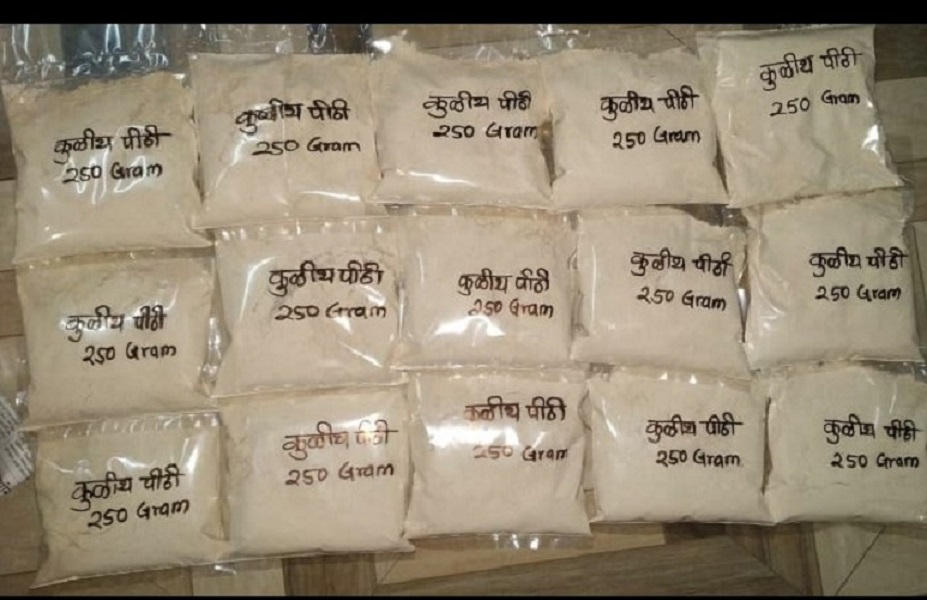 कुळीथ पीठी
250 Gram
कुळीथ पीठी
250 Gram
कुळीथ पीठी
250 Gram
कुळीथ पीठी
250 Gram
कुळीथ पीठी
250 Gram
कुळीथ पीठी
250 Gram
कुळीथ पीठी
250 Gram
कुळीथ पीठी
250 Gram
कुळीथ पीठी
250 Gram
कुळीथ पीठी
250 Gram
कुळीथ पीठी
250 Gram
कुळीथ पीठी
250 Gram
कुळीथ पीठी
250 Gram
कुळीथ पीठी
250 Gram
कुळीथ पीठी
250 Gram